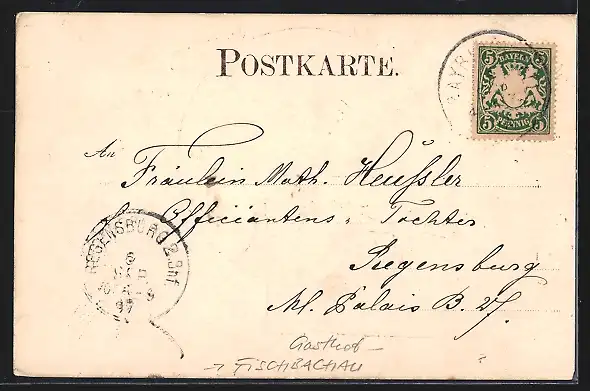 POSTKARTE.
BAYERN
5 5
PFENNIG
5 5
An
Fräulein Math. Heußler
Officiantens-Tochter
Regensburg
Kl. Palais B. 27.
REGENSBURG 2. Bhf.
97
Gasthof –
→ FISCHBACHAU ?